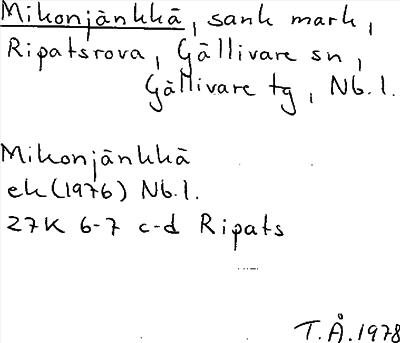 Mikonjänkkä, sank mark,
Ripatsrova, Gällivare sn,
Gällivare tg, Nb.l.
Mikonjänkkä
ek (1976) Nb.l.
27K 6-7 c-d Ripats
T.Å. 1978